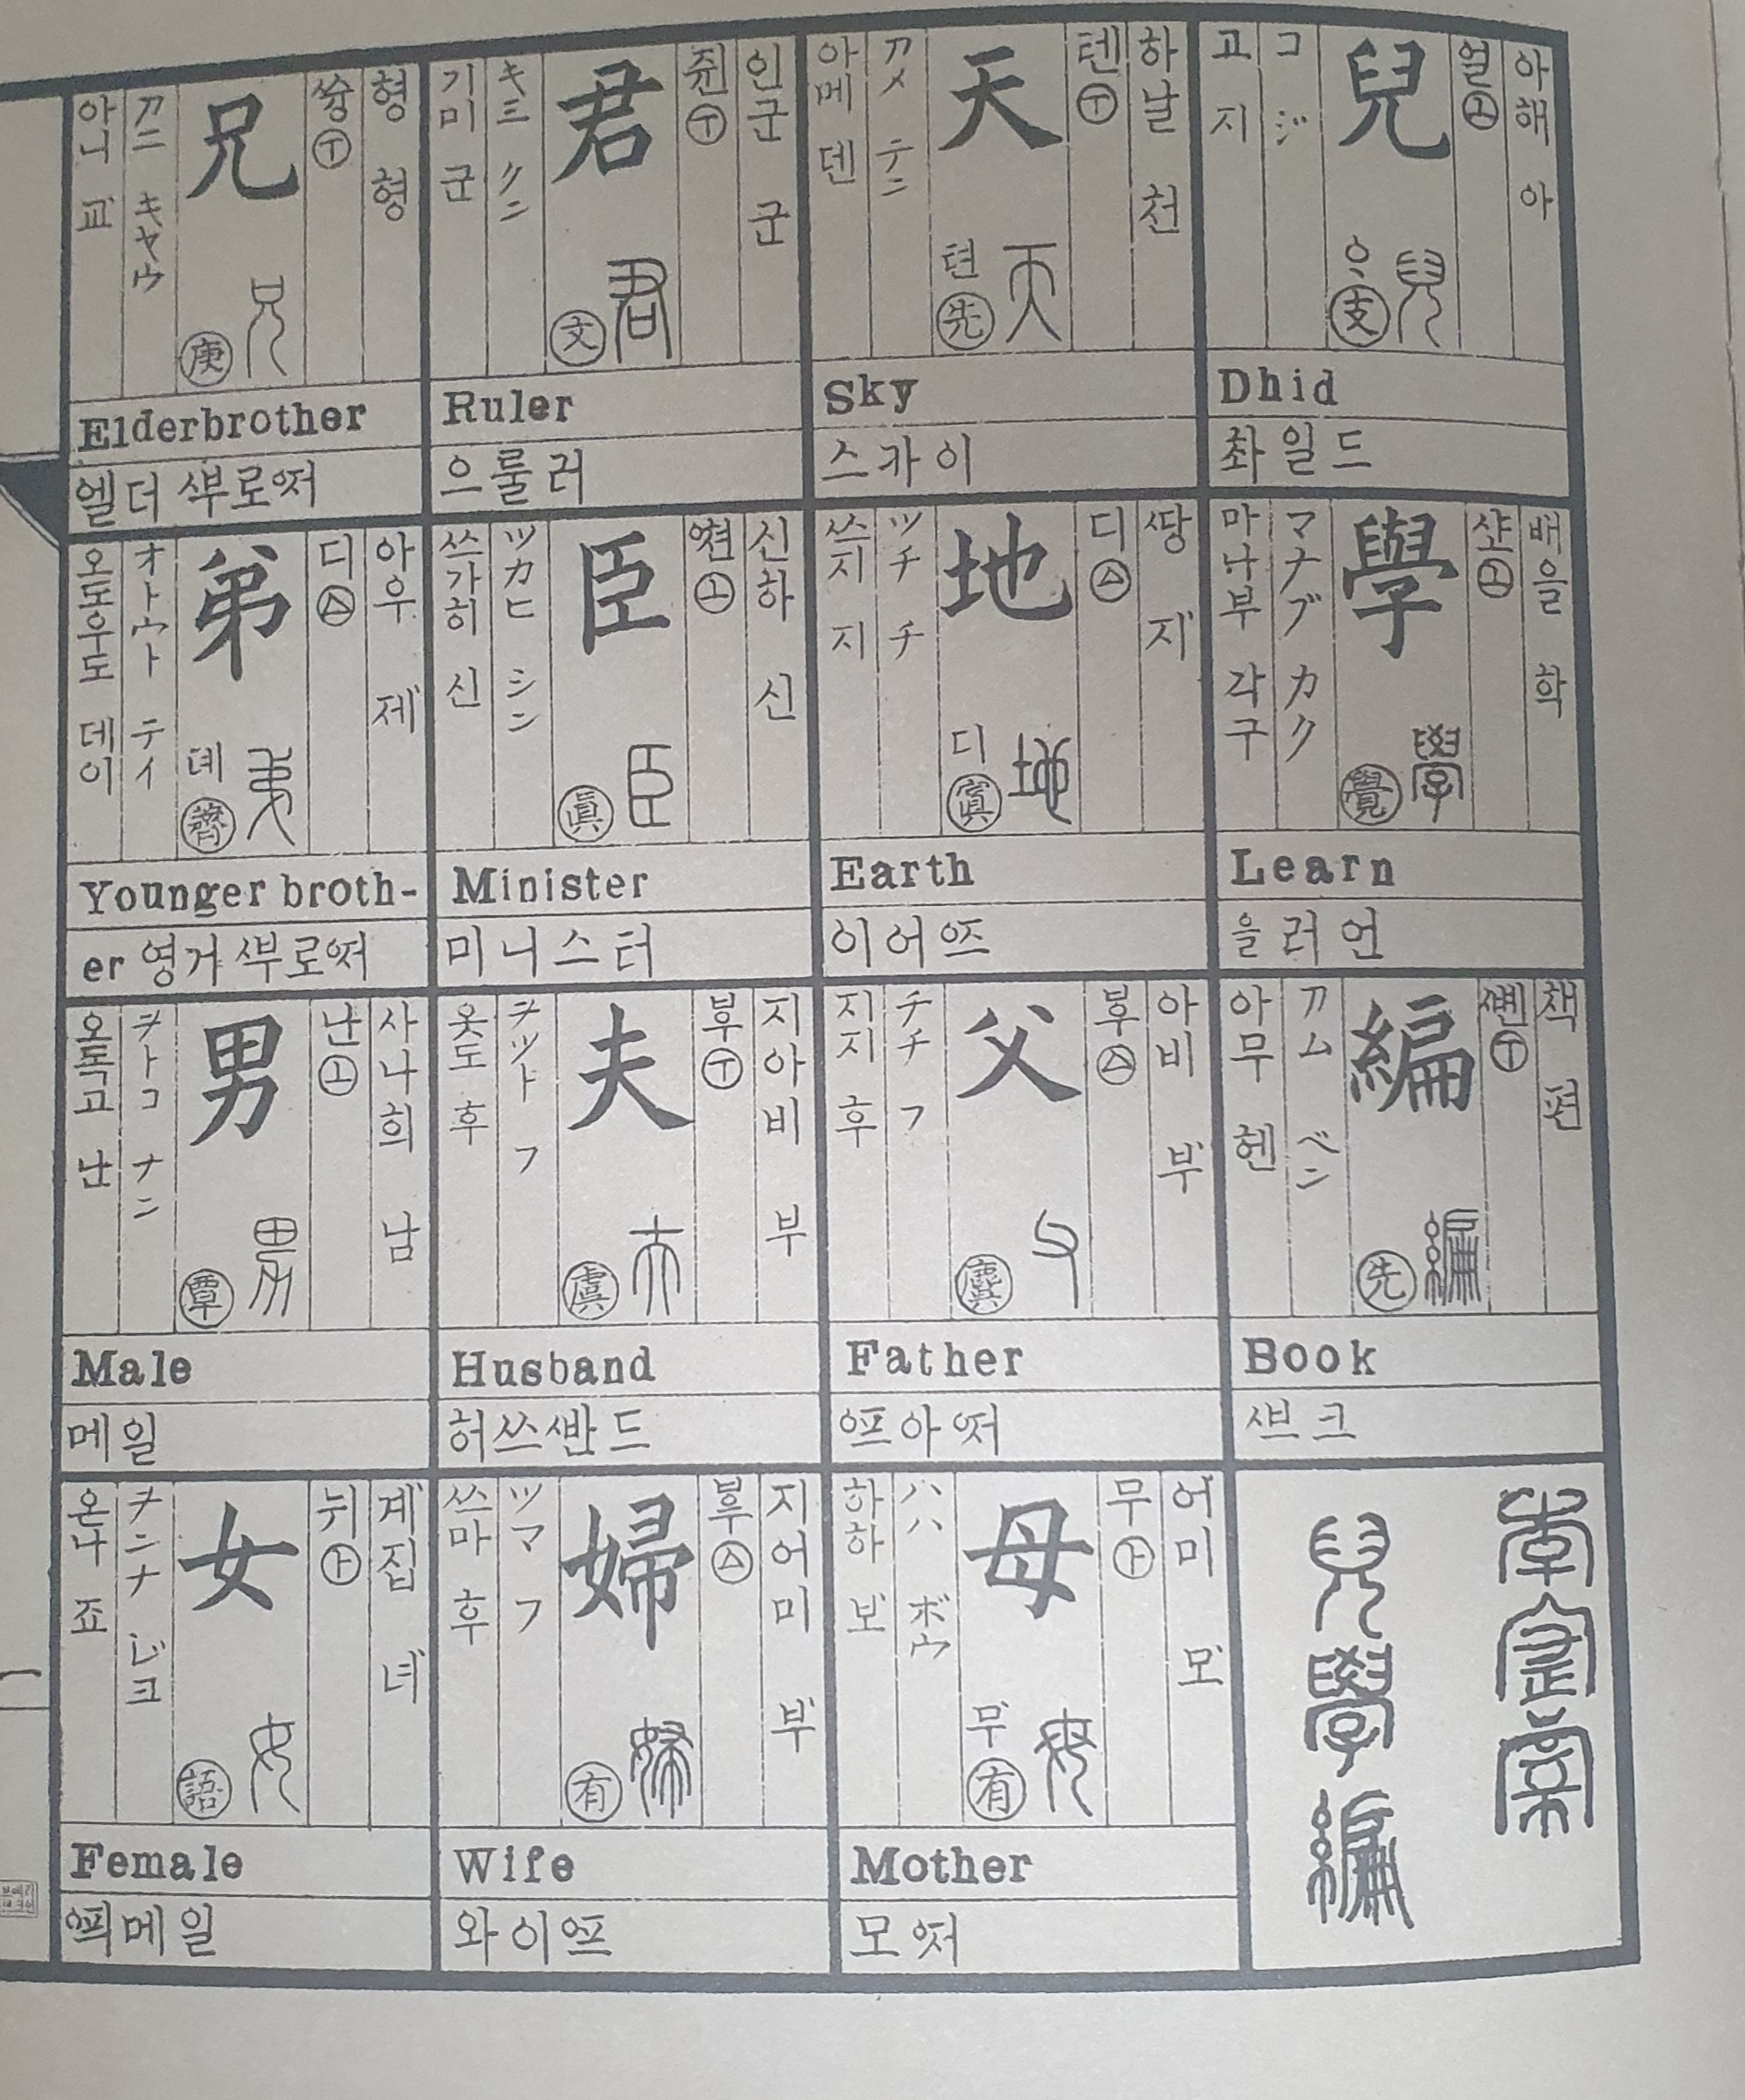 아해 아
얼 ㊤
兒
兒
ᄋᆞ
支
コ ジ
고 지
Dhid
촤일드
배을 학
學
學
覺
マナブ カク
마나부 각구
Learn
을러언
책 편
編
編
先
アム ベン
아무 헨
Book
ᄲᅳ크
兒學編
하날 천
텐 ㊦
天
天
텬
先
アメ テン
아메 덴
Sky
스카이
ᄯᅡᆼ 지
디
地
地
디
寘
ツチ チ
쓰지 지
Earth
이어ᅋᅳ즈
아비 부
父
父
麌
チチ フ
지지 후
Father
어미 모
무
母
母
무
有
ハハ ボウ
하하 보
Mother
인군 군
쥔 ㊦
君
君
文
キミ クン
기미 군
Ruler
으룰러
신하 신
臣
臣
眞
ツカヒ シン
쓰가히 신
Minister
미니스터
지아비 부
夫
夫
虞
ヲット フ
옷도 후
Husband
허쓰ᄲᅡᆫ드
지어미 부
婦
婦
有
ツマ フ
쓰마 후
Wife
형 형
兄
兄
庚
アニ キヤウ
아니 교
Elderbrother
엘더ᄲᅮ로ᅋᅥ저
아우 제
디
弟
弟
뎨
薺
オトウト テイ
오도우도 데이
Younger broth-
er 영거ᄲᅮ로ᅋᅥ저
사나희 남
난 ㊤
男
男
覃
ヲトコ ナン
오독고 난
Male
메일
계집 녀
뉘
女
女
語
ヲンナ ジヨ
온나 죠
Female